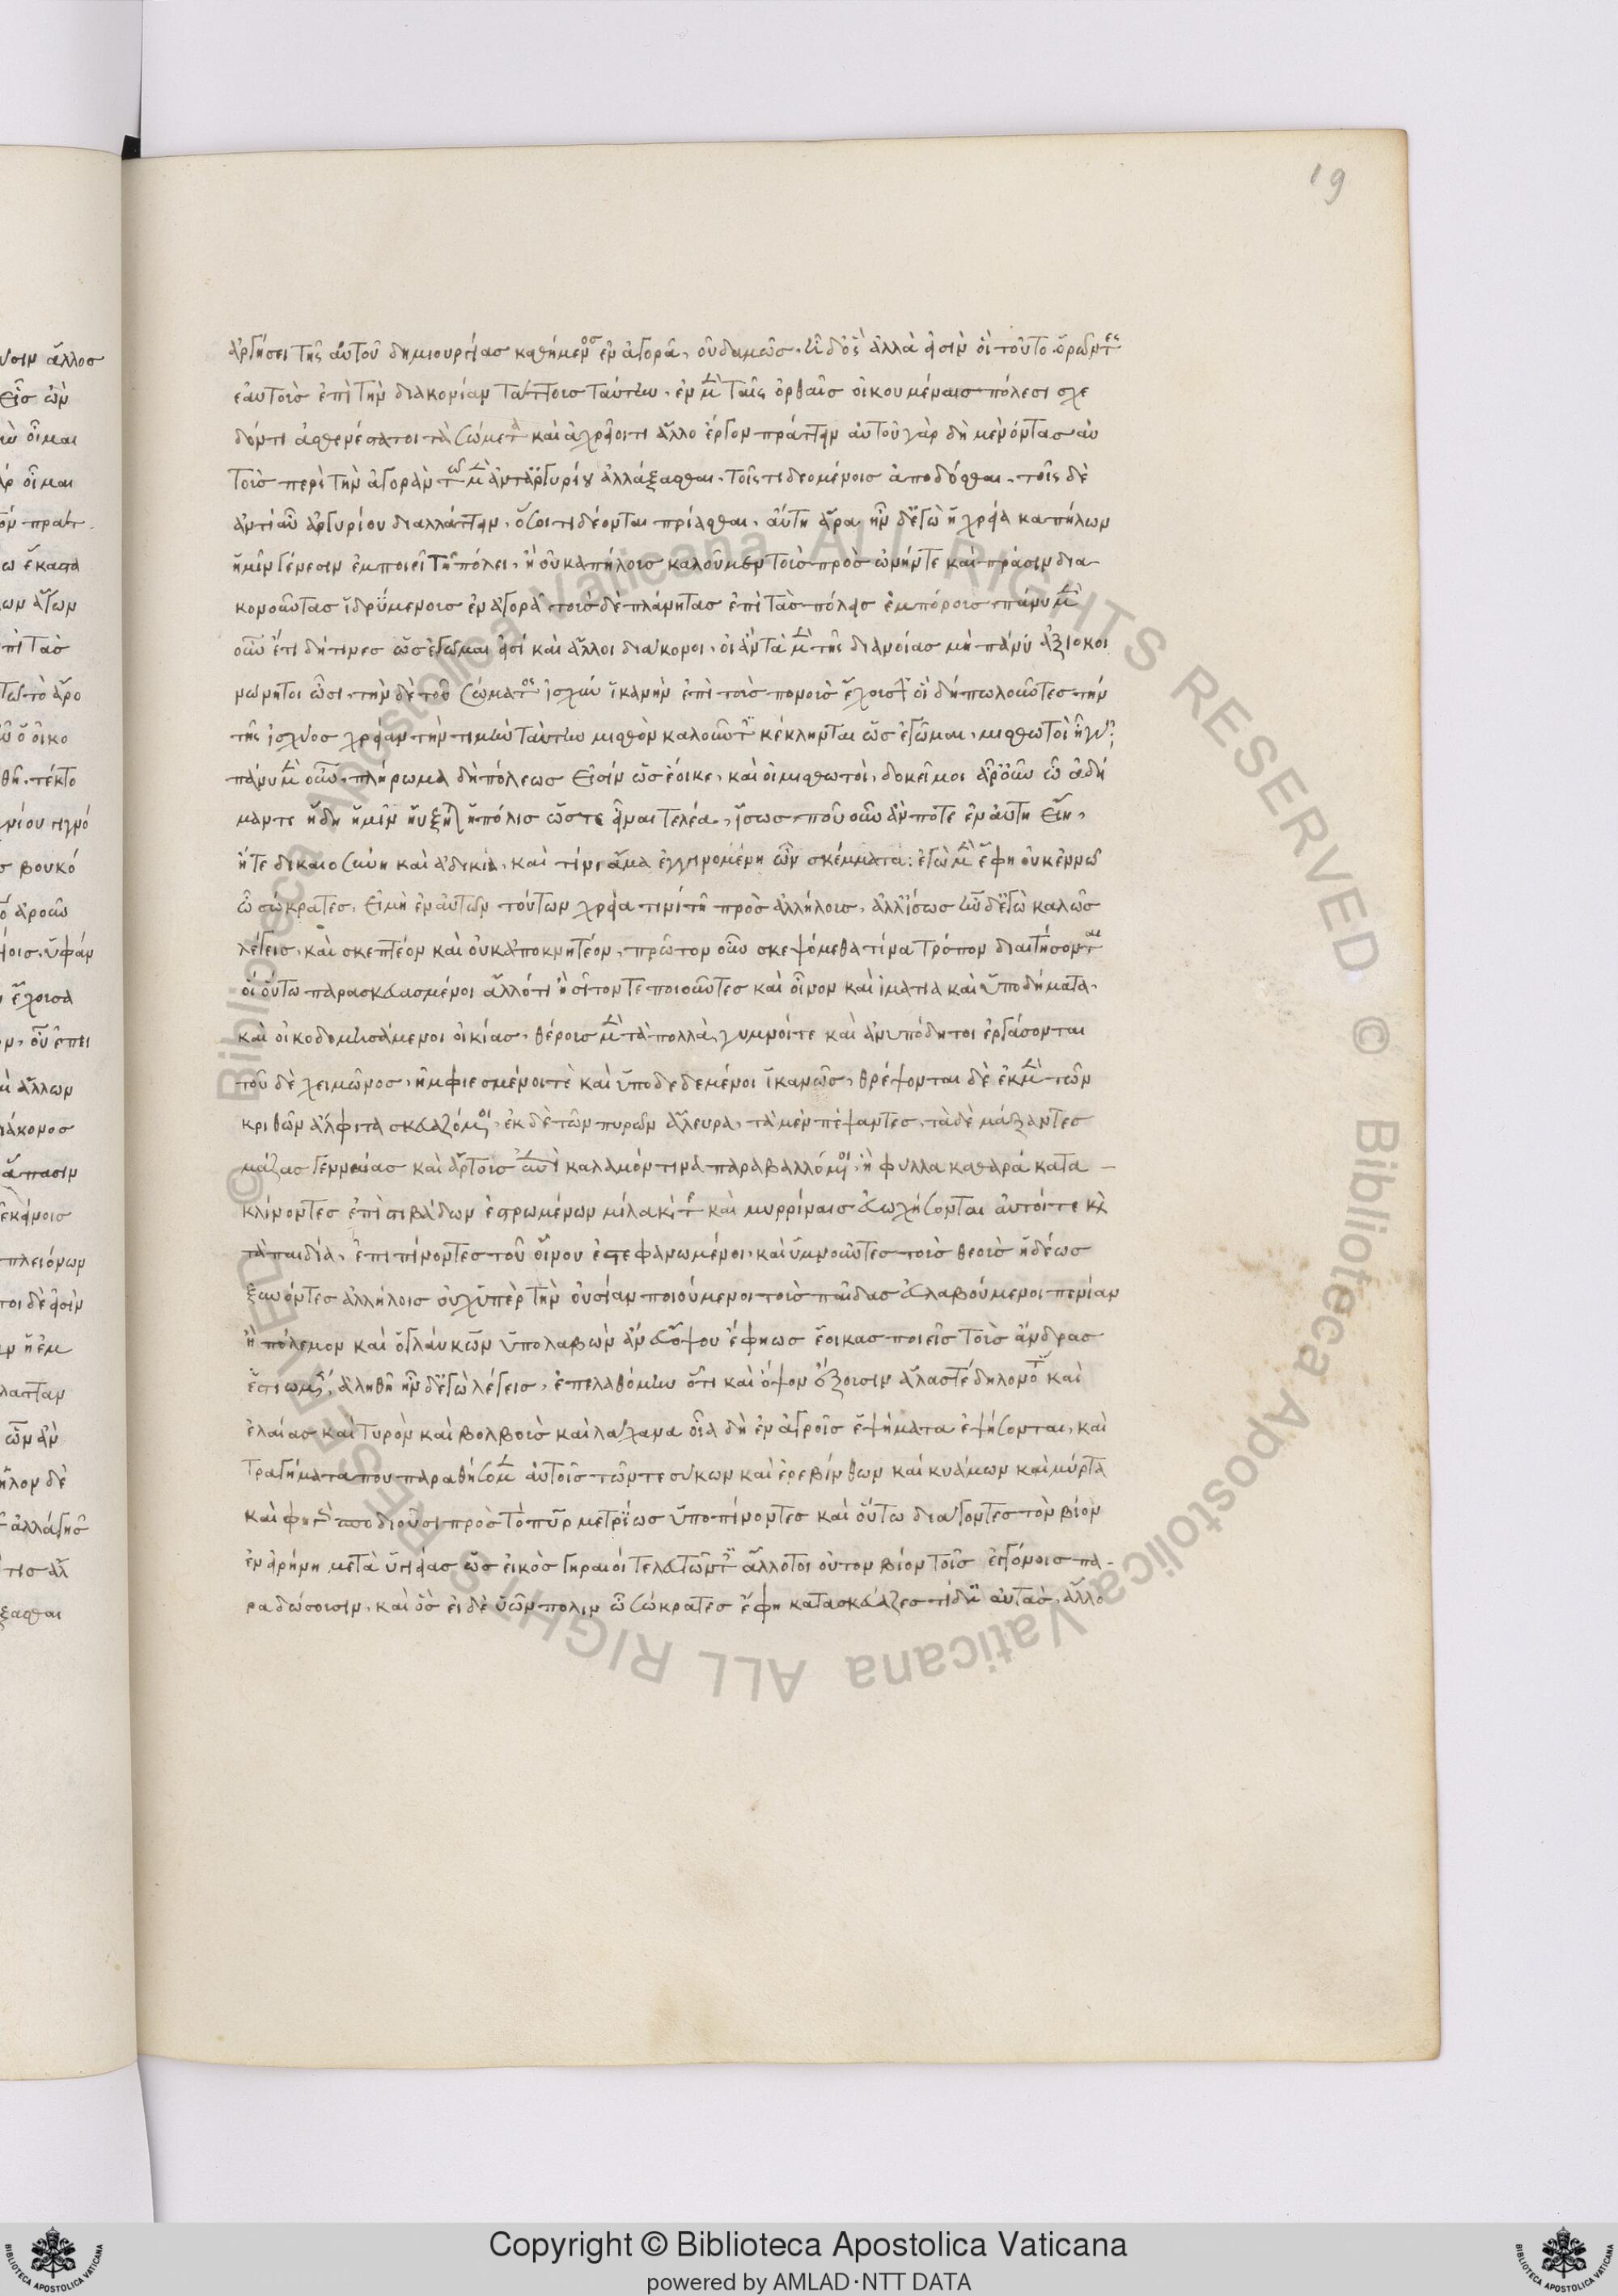 ἄλλος
οἶμαι
οἶμαι
ἕκαστα
βουκό
ὑφάν
ἄλλων
διάκονος
ἅπασιν
πλειόνων
19
ἀργήσει τῆς αὐτοῦ δημιουργίας καθήμενος ἐν ἀγορᾶ. οὐδαμῶς. ἦ δ' ὃς ἀλλὰ εἰσὶν οἳ τοῦτο ὁρῶντες
ἑαυτοὺς ἐπὶ τὴν διακονίαν τάττουσι ταύτην. ἐν μὲν ταῖς ὀρθῶς οἰκουμέναις πόλεσι σχε
δόν τι ἀσθενέστατοι τὰ σώματα καὶ ἀχρεῖοί τι ἄλλο ἔργον πράττειν αὐτοῦ γὰρ δὴ μένοντας αὐ
τοὺς περὶ τὴν ἀγορὰν τὰ μὲν ἀντ' ἀργυρίου ἀλλάξασθαι. τοῖς τι δεομένοις ἀποδόσθαι. τοῖς δὲ
ἀντὶ αὖ ἀργυρίου διαλλάττειν. ὅσοι τι δέονται πρίασθαι. αὕτη ἄρα ἦν δ' ἐγὼ ἡ χρεία καπήλων
ἡμῖν γένεσιν ἐμποιεῖ τῇ πόλει. ἢ οὐ καπήλους καλοῦμεν τοὺς πρὸς ὠνήν τε καὶ πράσιν δια
κονοῦντας ἱδρυμένους ἐν ἀγορᾷ τοὺς δὲ πλάνητας ἐπὶ τὰς πόλεις ἐμπόρους πάνυ μὲν
οὖν ἔτι δή τινες ὡς ἐγῷμαι εἰσὶ καὶ ἄλλοι διάκονοι. οἳ ἂν τὰ μὲν τῆς διανοίας μὴ πάνυ ἀξιοκοι
νώνητοι ὦσι. τὴν δὲ τοῦ σώματος ἰσχὺν ἱκανὴν ἐπὶ τοὺς πόνους ἔχουσιν οἳ δὴ πωλοῦντες τὴν
τῆς ἰσχύος χρείαν τὴν τιμὴν ταύτην μισθὸν καλοῦντες κέκληνται ὡς ἐγῷμαι. μισθωτοὶ ἢ γάρ;
πάνυ μὲν οὖν. πλήρωμα δὴ πόλεως εἰσίν ὡς ἔοικε. καὶ οἱ μισθωτοί. δοκεῖ μοι ἆρ' οὖν ὦ ἀδεί
μαντε ἤδη ἡμῖν ηὔξηται ἡ πόλις ὥστε εἶναι τελέα. ἴσως ποῦ οὖν ἄν ποτε ἐν αὐτῇ εἴη.
ἥ τε δικαιοσύνη καὶ ἀδικία. καὶ τίνι ἅμα ἐγγινομένη ὧν ἐσκέμμεθα: ἐγὼ μὲν ἔφη οὐκ ἐννοῶ
ὦ σώκρατες. εἰ μὴ ἐν αὐτῶν τούτων χρεία τινί τῇ πρὸς ἀλλήλους. ἀλλ' ἴσως ἦν δ' ἐγὼ καλῶς
λέγεις. καὶ σκεπτέον καὶ οὐκ ἀποκνητέον. πρῶτον οὖν σκεψώμεθα τίνα τρόπον διαιτήσονται
οἱ οὕτω παρασκευασμένοι ἄλλό τι ἢ σῖτόν τε ποιοῦντες καὶ οἶνον καὶ ἱμάτια καὶ ὑποδήματα.
καὶ οἰκοδομησάμενοι οἰκίας. θέρους μὲν τὰ πολλὰ γυμνοί τε καὶ ἀνυπόδητοι ἐργάσονται
τοῦ δὲ χειμῶνος. ἠμφιεσμένοι τὲ καὶ ὑποδεδεμένοι ἱκανῶς. θρέψονται δὲ ἐκ μὲν τῶν
κριθῶν ἄλφιτα σκευαζόμενοι. ἐκ δὲ τῶν πυρῶν ἄλευρα. τὰ μὲν πέψαντες. τὰ δὲ μάξαντες
μάζας γενναίας καὶ ἄρτους ἐπὶ κάλαμόν τινα παραβαλλόμενοι. ἢ φύλλα καθαρά κατα
κλίνοντες ἐπὶ στιβάδων ἐστρωμένων μίλακί τε καὶ μυρρίναις εὐωχήσονται αὐτοί τε κὲ
τὰ παιδία. ἐπιπίνοντες τοῦ οἴνου ἐστεφανωμένοι. καὶ ὑμνοῦντες τοὺς θεοὺς ἡδέως
ξυνόντες ἀλλήλοις οὐχ ὑπὲρ τὴν οὐσίαν ποιούμενοι τοὺς παῖδας εὐλαβούμενοι πενίαν
ἢ πόλεμον καὶ ὁ γλαύκων ὑπολαβὼν ἄνευ ὄψου ἔφη ὡς ἔοικας ποιεῖς τοὺς ἄνδρας
ἑστιωμένους. ἀληθῆ ἦν δ' ἐγὼ λέγεις. ἐπελαθόμην ὅτι καὶ ὄψον ἕξουσιν ἅλας τέ δηλονότι καὶ
ἐλαίας καὶ τυρὸν καὶ βολβοὺς καὶ λάχανα οἷα δὴ ἐν ἀγροῖς ἑψήματα ἑψήσονται. καὶ
τραγήματα που παραθήσομεν αὐτοῖς τῶν τε σύκων καὶ ἐρεβίνθων καὶ κυάμων καὶ μύρτα
καὶ φηγοὺς σποδιοῦσι πρὸς τὸ πῦρ μετρίως ὑποπίνοντες καὶ οὕτω διάγοντες τὸν βίον
ἐν εἰρήνη μετὰ ὑγιείας ὡς εἰκὸς γηραιοί τελευτῶντες ἄλλον τοιοῦτον βίον τοῖς ἐκγόνοις πα
ραδώσουσιν. καὶ ὃς εἰ δὲ ὑῶν πόλιν ὦ σώκρατες ἔφη κατεσκεύαζες τί δ' ἂν αὐτὰς. ἄλλο
© Biblioteca Apostolica Vaticana ALL RIGHTS RESERVED © Biblioteca Apostolica Vaticana ALL RIGHTS RESERVED
BIBLIOTECA APOSTOLICA VATICANA
Copyright © Biblioteca Apostolica Vaticana
powered by AMLAD·NTT DATA
BIBLIOTECA APOSTOLICA VATICANA